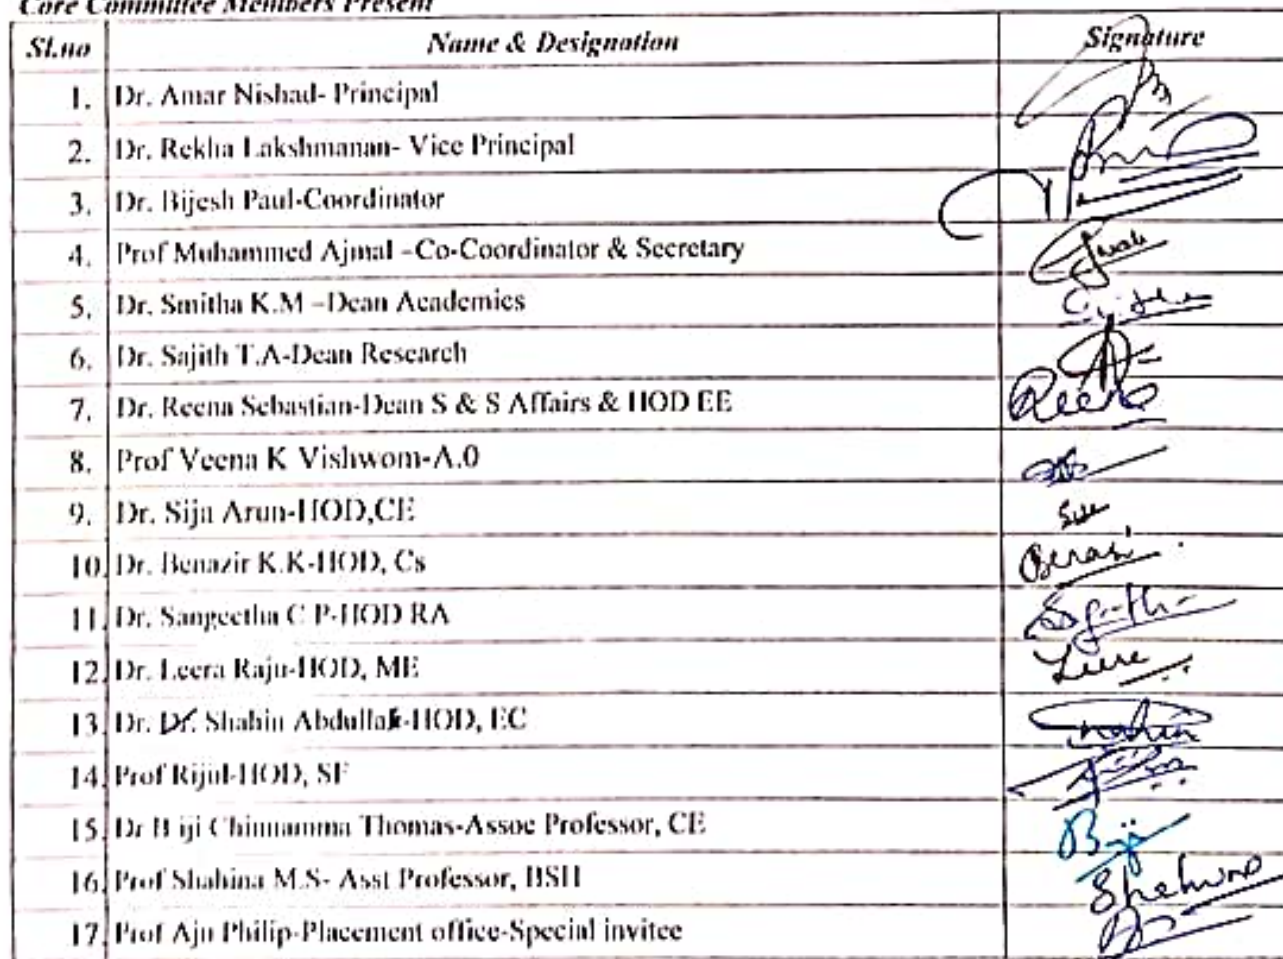 Core Committee Members Present
Sl.no Name & Designation Signature
1. Dr. Amar Nishad- Principal
2. Dr. Rekha Lakshmanan- Vice Principal
3. Dr. Bijesh Paul-Coordinator
4. Prof Muhammed Ajmal –Co-Coordinator & Secretary
5. Dr. Smitha K.M –Dean Academics
6. Dr. Sajith T.A-Dean Research
7. Dr. Reena Sebastian-Dean S & S Affairs & HOD EE Reena
8. Prof Veena K Vishwom-A.0
9. Dr. Sija Arun-HOD,CE
10. Dr. Benazir K.K-HOD, Cs
11. Dr. Sangeetha C P-HOD RA
12. Dr. Leera Raju-HOD, ME
13. Dr. Dr. Shahin Abdullah-HOD, EC
14. Prof Rijul-HOD, SF
15. Dr B iji Chinnamma Thomas-Assoc Professor, CE Biji
16. Prof Shahina M.S- Asst Professor, BSH
17. Prof Aju Philip-Placement office-Special invitee